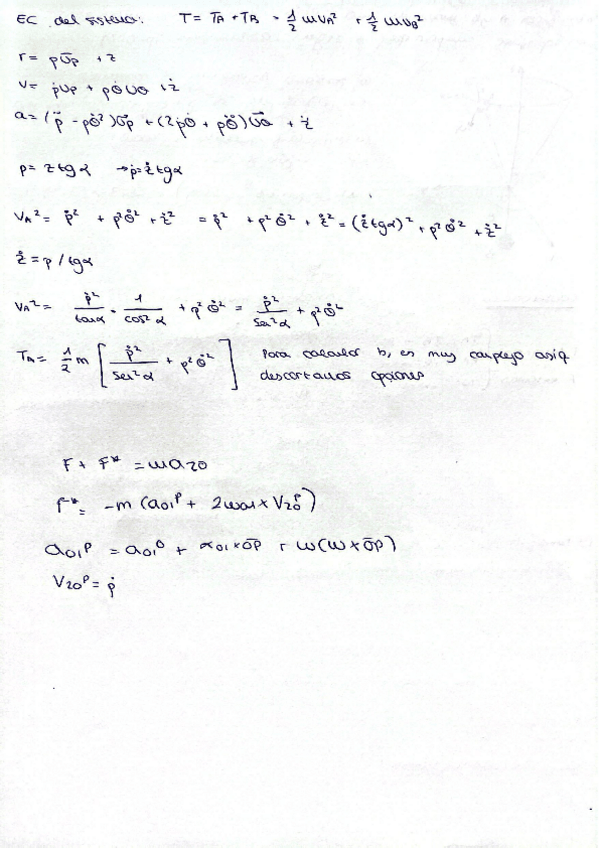 EC del sistema: T = TA + TB = 1/2 m VA² + 1/2 m VB²
r = ρūρ + z
v = ρ̇uρ + ρθ̇uθ + ż
a = (ρ̈ - ρθ̇²)ūρ + (2ρ̇θ̇ + ρθ̈)ūθ + z̈
ρ = z tgα → ρ̇ = ż tgα
VA² = ρ̇² + ρ²θ̇² + ż² = ρ̇² + ρ²θ̇² + ż² = (ż tgα)² + ρ²θ̇² + ż²
ż = ρ / tgα
VA² = ρ̇²/tanα · 1/cos²α + ρ²θ̇² = ρ̇²/sen²α + ρ²θ̇²
TA = 1/2 m [ρ̇²/sen²α + ρ²θ̇²] Para calcular b, es muy complejo asiq
descartamos opciones
F + F* = ma20
F* = -m (a01ᴾ + 2ω01 x V20ᴾ)
a01ᴾ = a01⁰ + α01 x OP + ω(ω x OP)
V20ᴾ = ρ̇